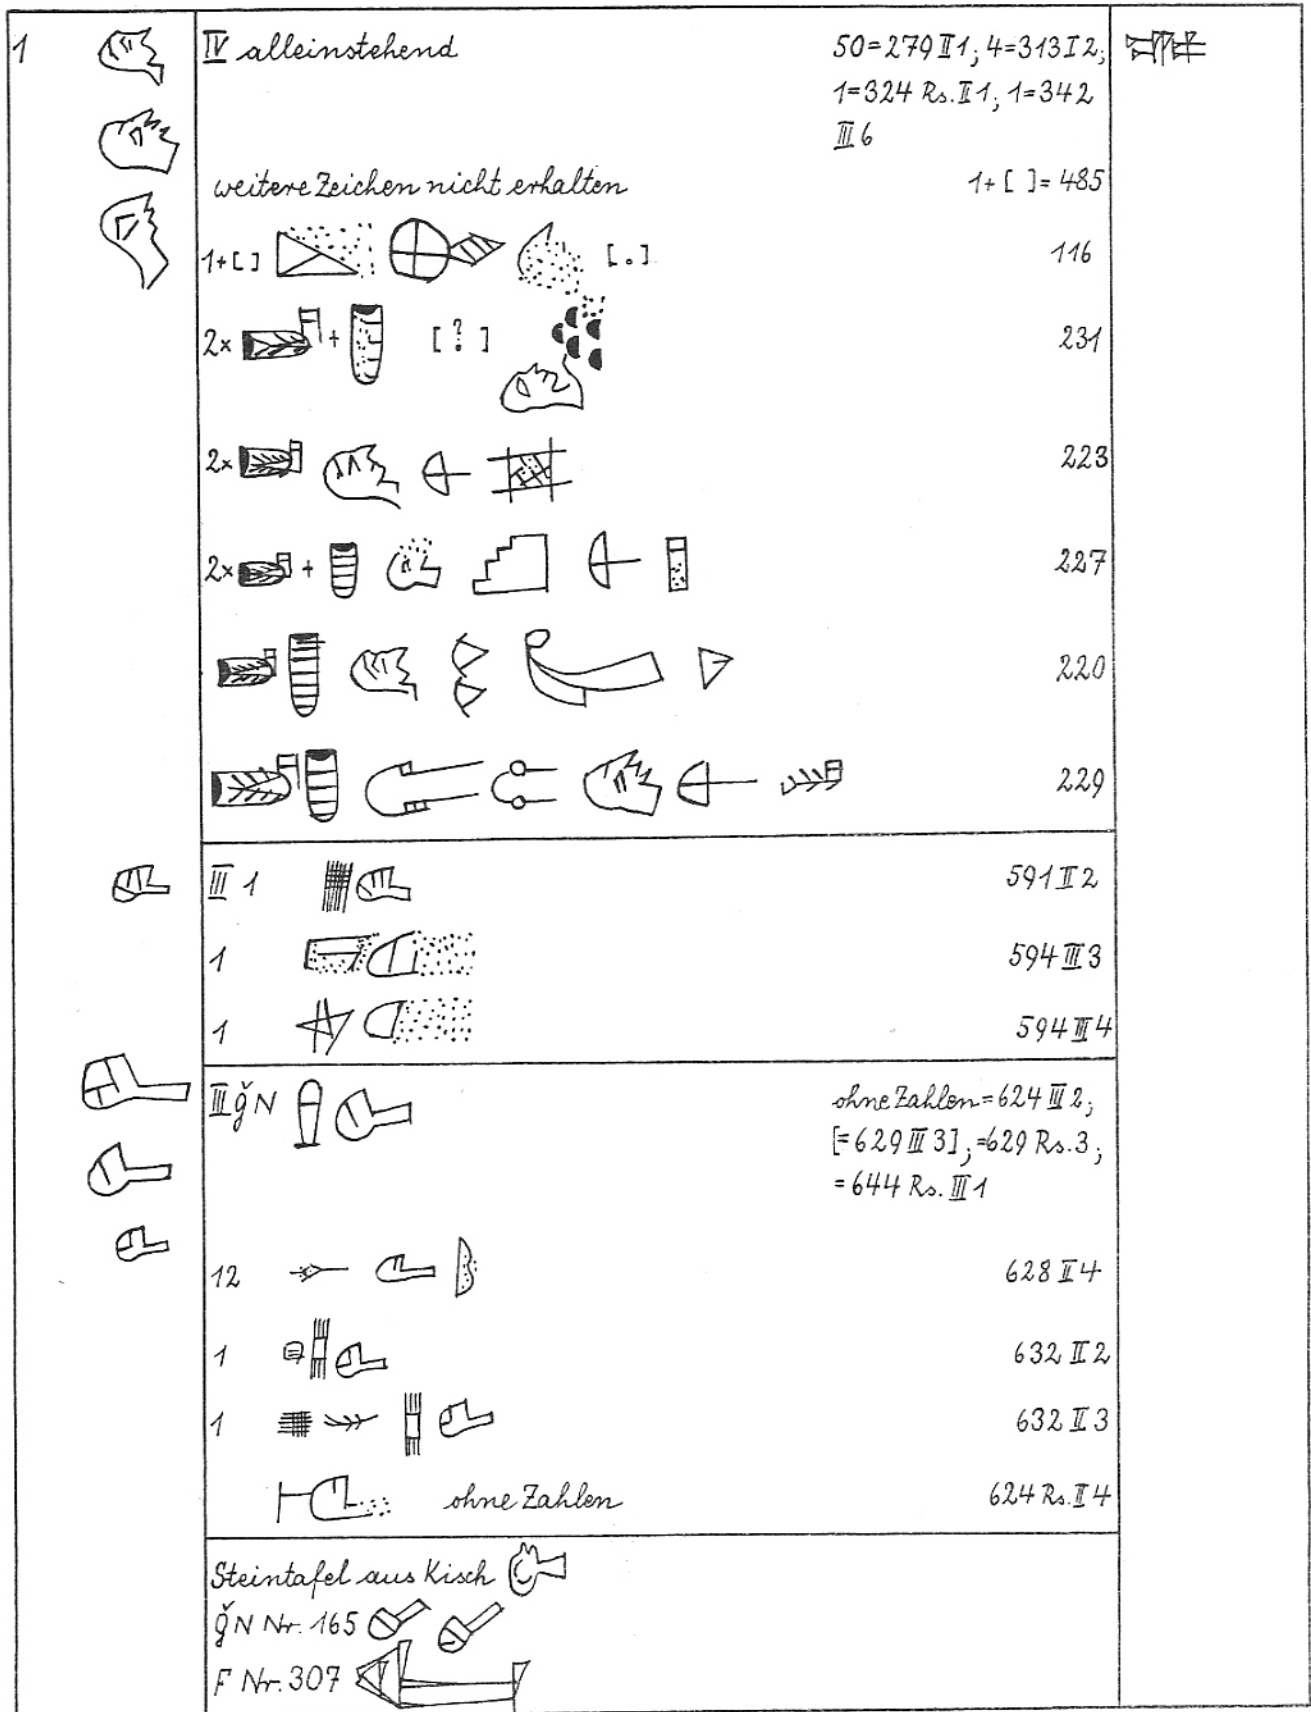 1 IV alleinstehend 50=279 II 1; 4=313 I 2;
1=324 Rs. II 1; 1=342
III 6
weitere Zeichen nicht erhalten 1+[ ]=485
1+[ ] [.] 116
2x + [?] 231
2x 223
2x + 227
220
229
III 1 591 II 2
1 594 III 3
1 594 III 4
III ǧN ohne Zahlen=624 III 2;
[=629 III 3]; =629 Rs. 3;
=644 Rs. III 1
12 628 II 4
1 632 II 2
1 632 II 3
ohne Zahlen 624 Rs. II 4
Steintafel aus Kisch
ǧN Nr. 165
F Nr. 307